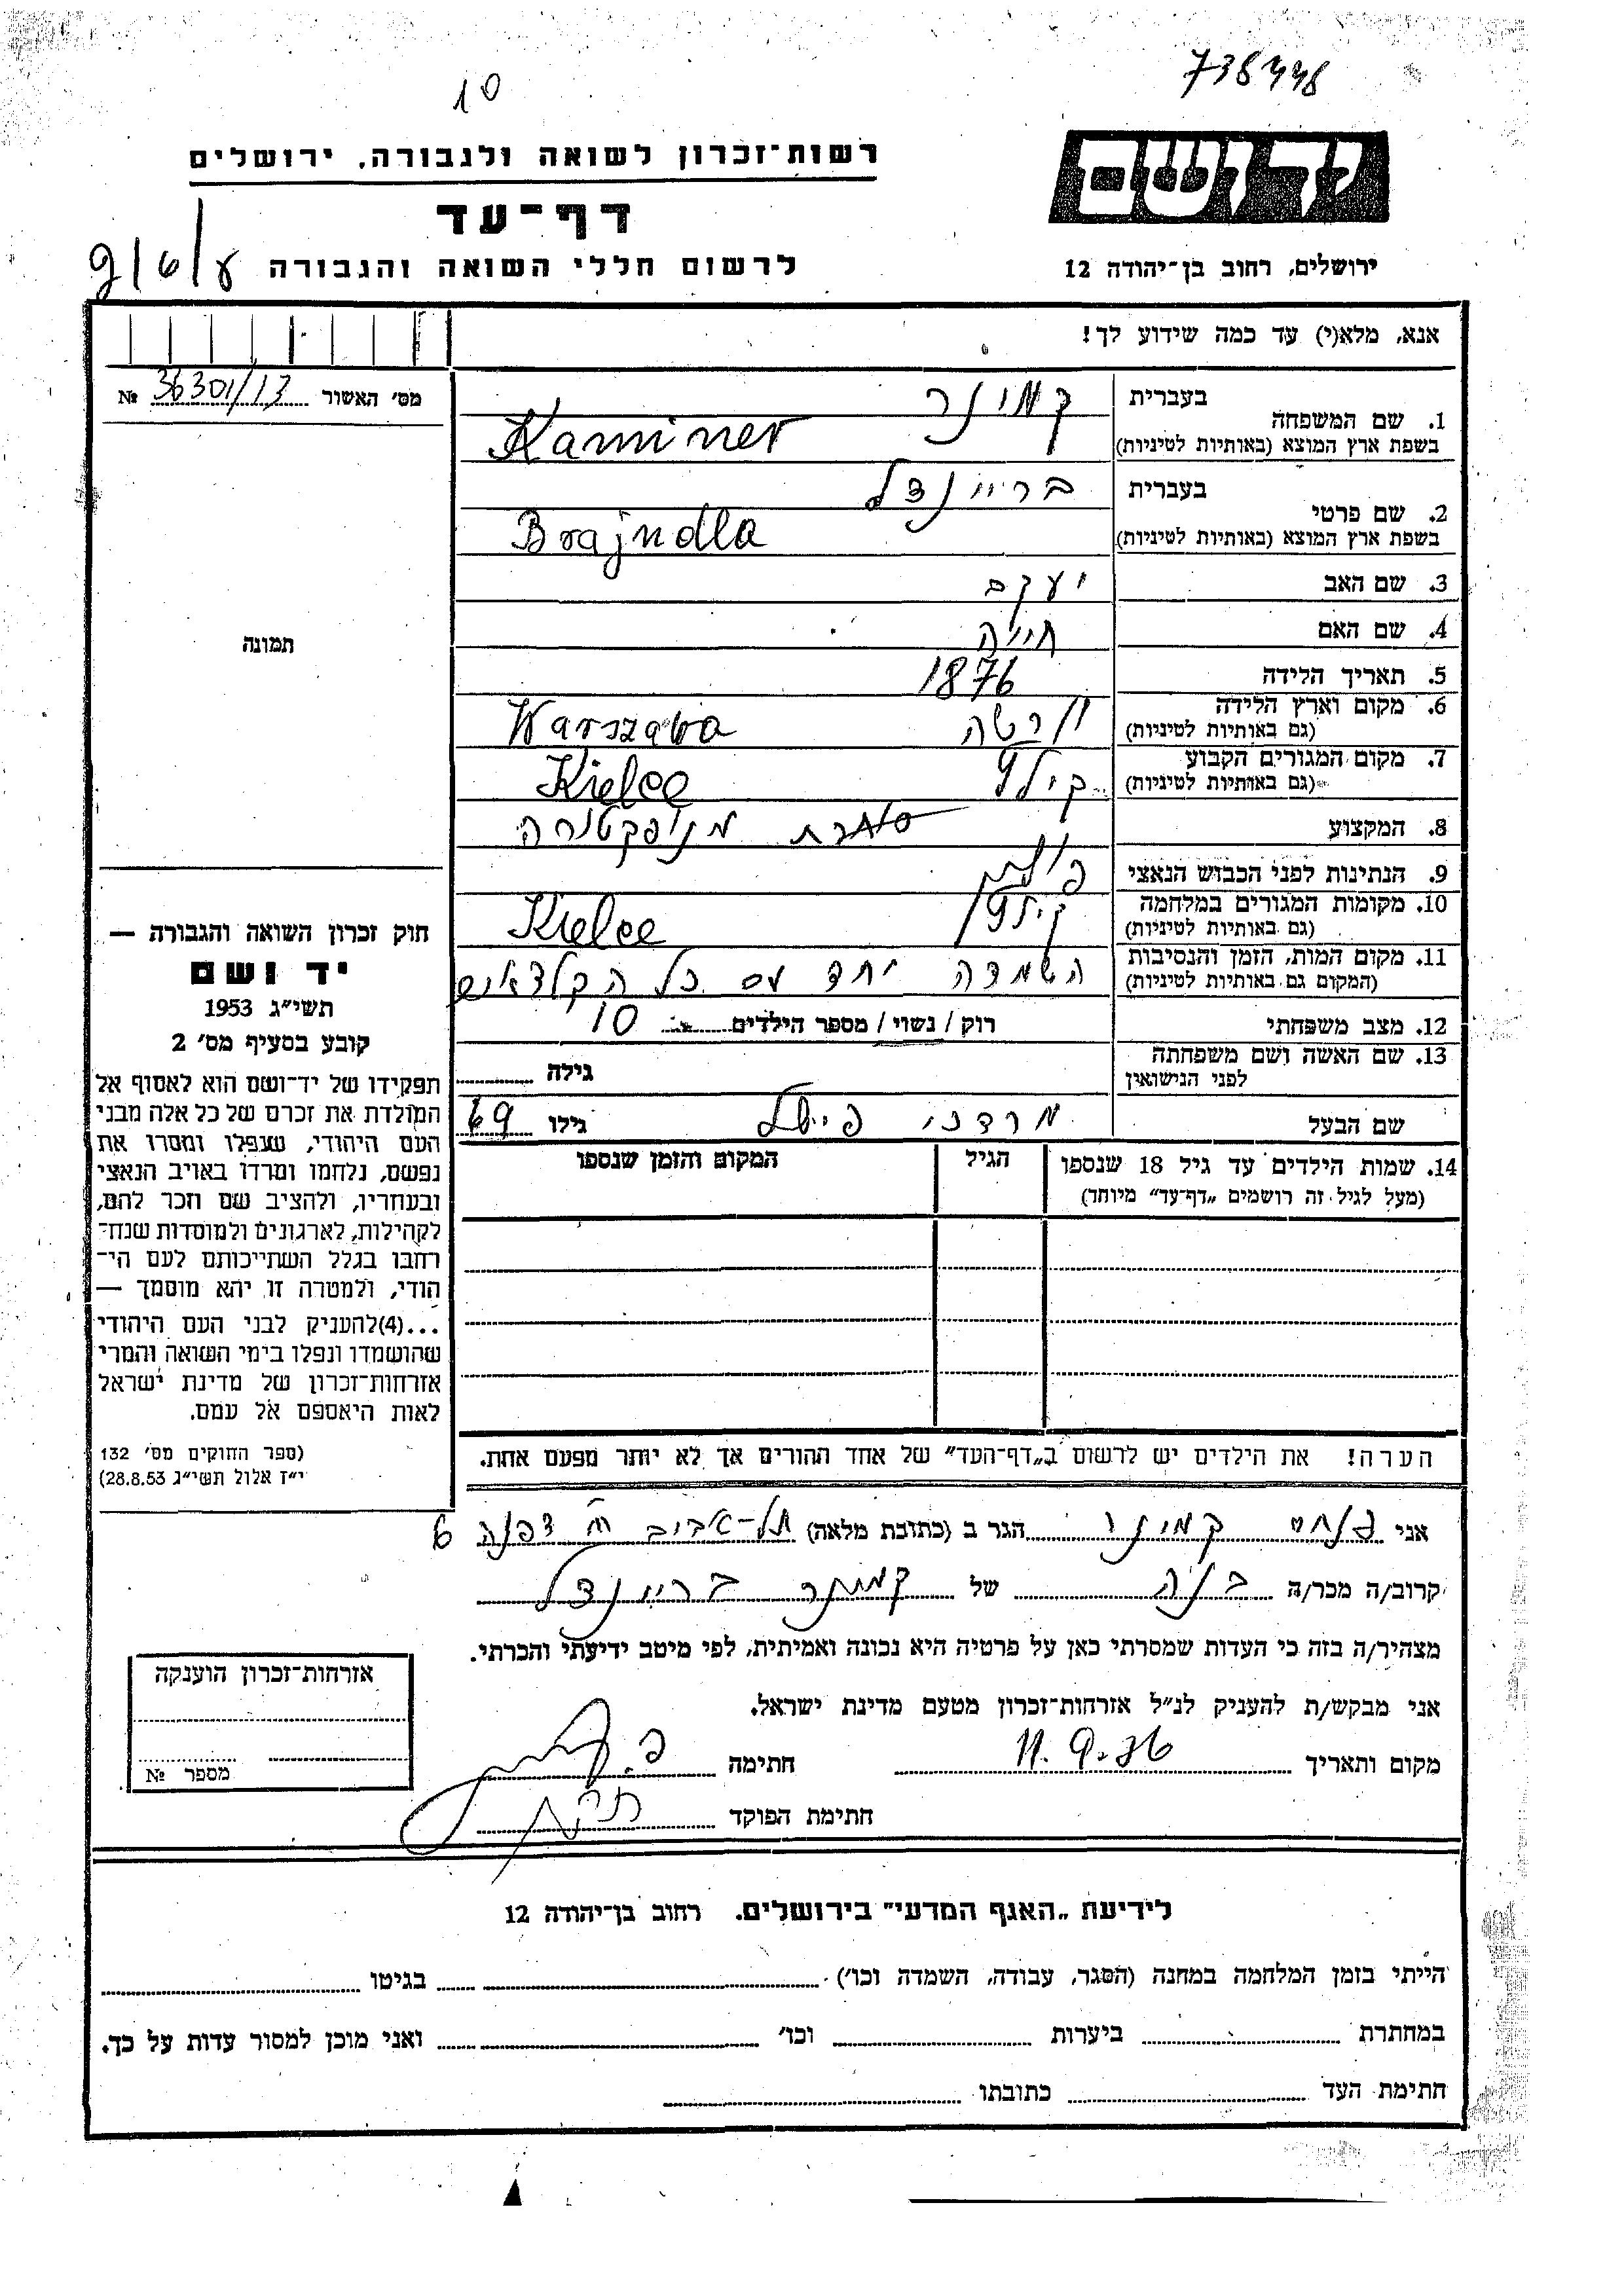 738448
10
רשות־זכרון לשואה ולגבורה, ירושלים
יד ושם
דף־עד
לרשום חללי השואה והגבורה
ירושלים, רחוב בן־יהודה 12
אנא, מלא(י) עד כמה שידוע לך!
מס׳ האשור 36301/13 №
1. שם המשפחה
בעברית קמינר
בשפת ארץ המוצא (באותיות לטיניות) Kaminer
2. שם פרטי
בעברית בריינדל
בשפת ארץ המוצא (באותיות לטיניות) Brajndla
3. שם האב יעקב
4. שם האם חייה
תמונה
5. תאריך הלידה 1876
6. מקום וארץ הלידה
(גם באותיות לטיניות) ורשה Warszawa
7. מקום המגורים הקבוע
(גם באותיות לטיניות) קילץ Kielce
8. המקצוע סוחרת מנופקטורה
9. הנתינות לפני הכבוש הנאצי
10. מקומות המגורים במלחמה
(גם באותיות לטיניות) קילץ Kielce
11. מקום המות, הזמן והנסיבות
(המקום גם באותיות לטיניות) השמדה יחד עם כל הקלצאים
12. מצב משפחתי רוק / נשוי / מספר הילדים 10
13. שם האשה ושם משפחתה
לפני הנישואין גילה
שם הבעל מרדכי פישל גילו 69
14. שמות הילדים עד גיל 18 שנספו הגיל המקום והזמן שנספו
(מעל לגיל זה רושמים „דף־עד״ מיוחד)
הערה! את הילדים יש לרשום ב„דף־העד״ של אחד ההורים אך לא יותר מפעם אחת.
חוק זכרון השואה והגבורה —
יד ושם
תשי״ג 1953
קובע בסעיף מס׳ 2
תפקידו של יד־ושם הוא לאסוף אל
המולדת את זכרם של כל אלה מבני
העם היהודי, שנפלו ומסרו את
נפשם, נלחמו ומרדו באויב הנאצי
ובעוזריו, ולהציב שם וזכר להם,
לקהילות, לארגונים ולמוסדות שנח־
רחבו בגלל השתייכותם לעם הי־
הודי, ולמטרה זו יהא מוסמך —
...(4)להעניק לבני העם היהודי
שהושמדו ונפלו בימי השואה והמרי
אזרחות־זכרון של מדינת ישראל
לאות היאספם אל עמם.
(ספר החוקים מס׳ 132
י״ז אלול תשי״ג 28.8.53)
אני פנחס קמינר הגר ב (כתובת מלאה) תל-אביב דפנה 6
קרוב/ה מכר/ה בנה של קמינר בריינדל
מצהיר/ה בזה כי העדות שמסרתי כאן על פרטיה היא נכונה ואמיתית, לפי מיטב ידיעתי והכרתי.
אני מבקש/ת להעניק לנ״ל אזרחות־זכרון מטעם מדינת ישראל.
מקום ותאריך חתימה
חתימת הפוקד
אזרחות־זכרון הוענקה
מספר №
לידיעת „האגף המדעי״ בירושלים. רחוב בן־יהודה 12
הייתי בזמן המלחמה במחנה (הסגר, עבודה, השמדה וכו׳) בגיטו
במחתרת ביערות וכו׳ ואני מוכן למסור עדות על כך.
חתימת העד כתובתו